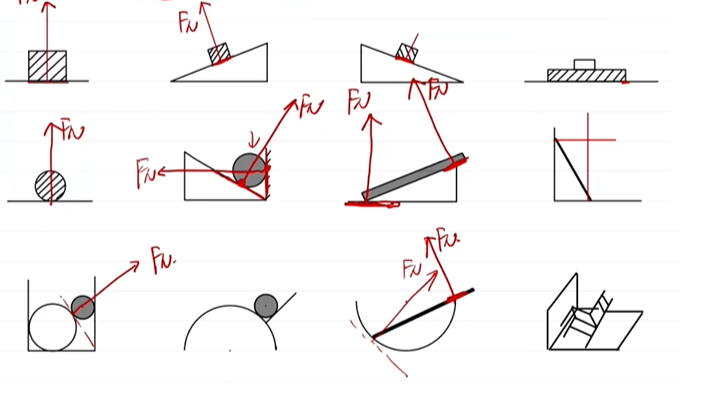 FN
FN
FN
FN
FN
FN
FN
FN
FN.
FN
FN.